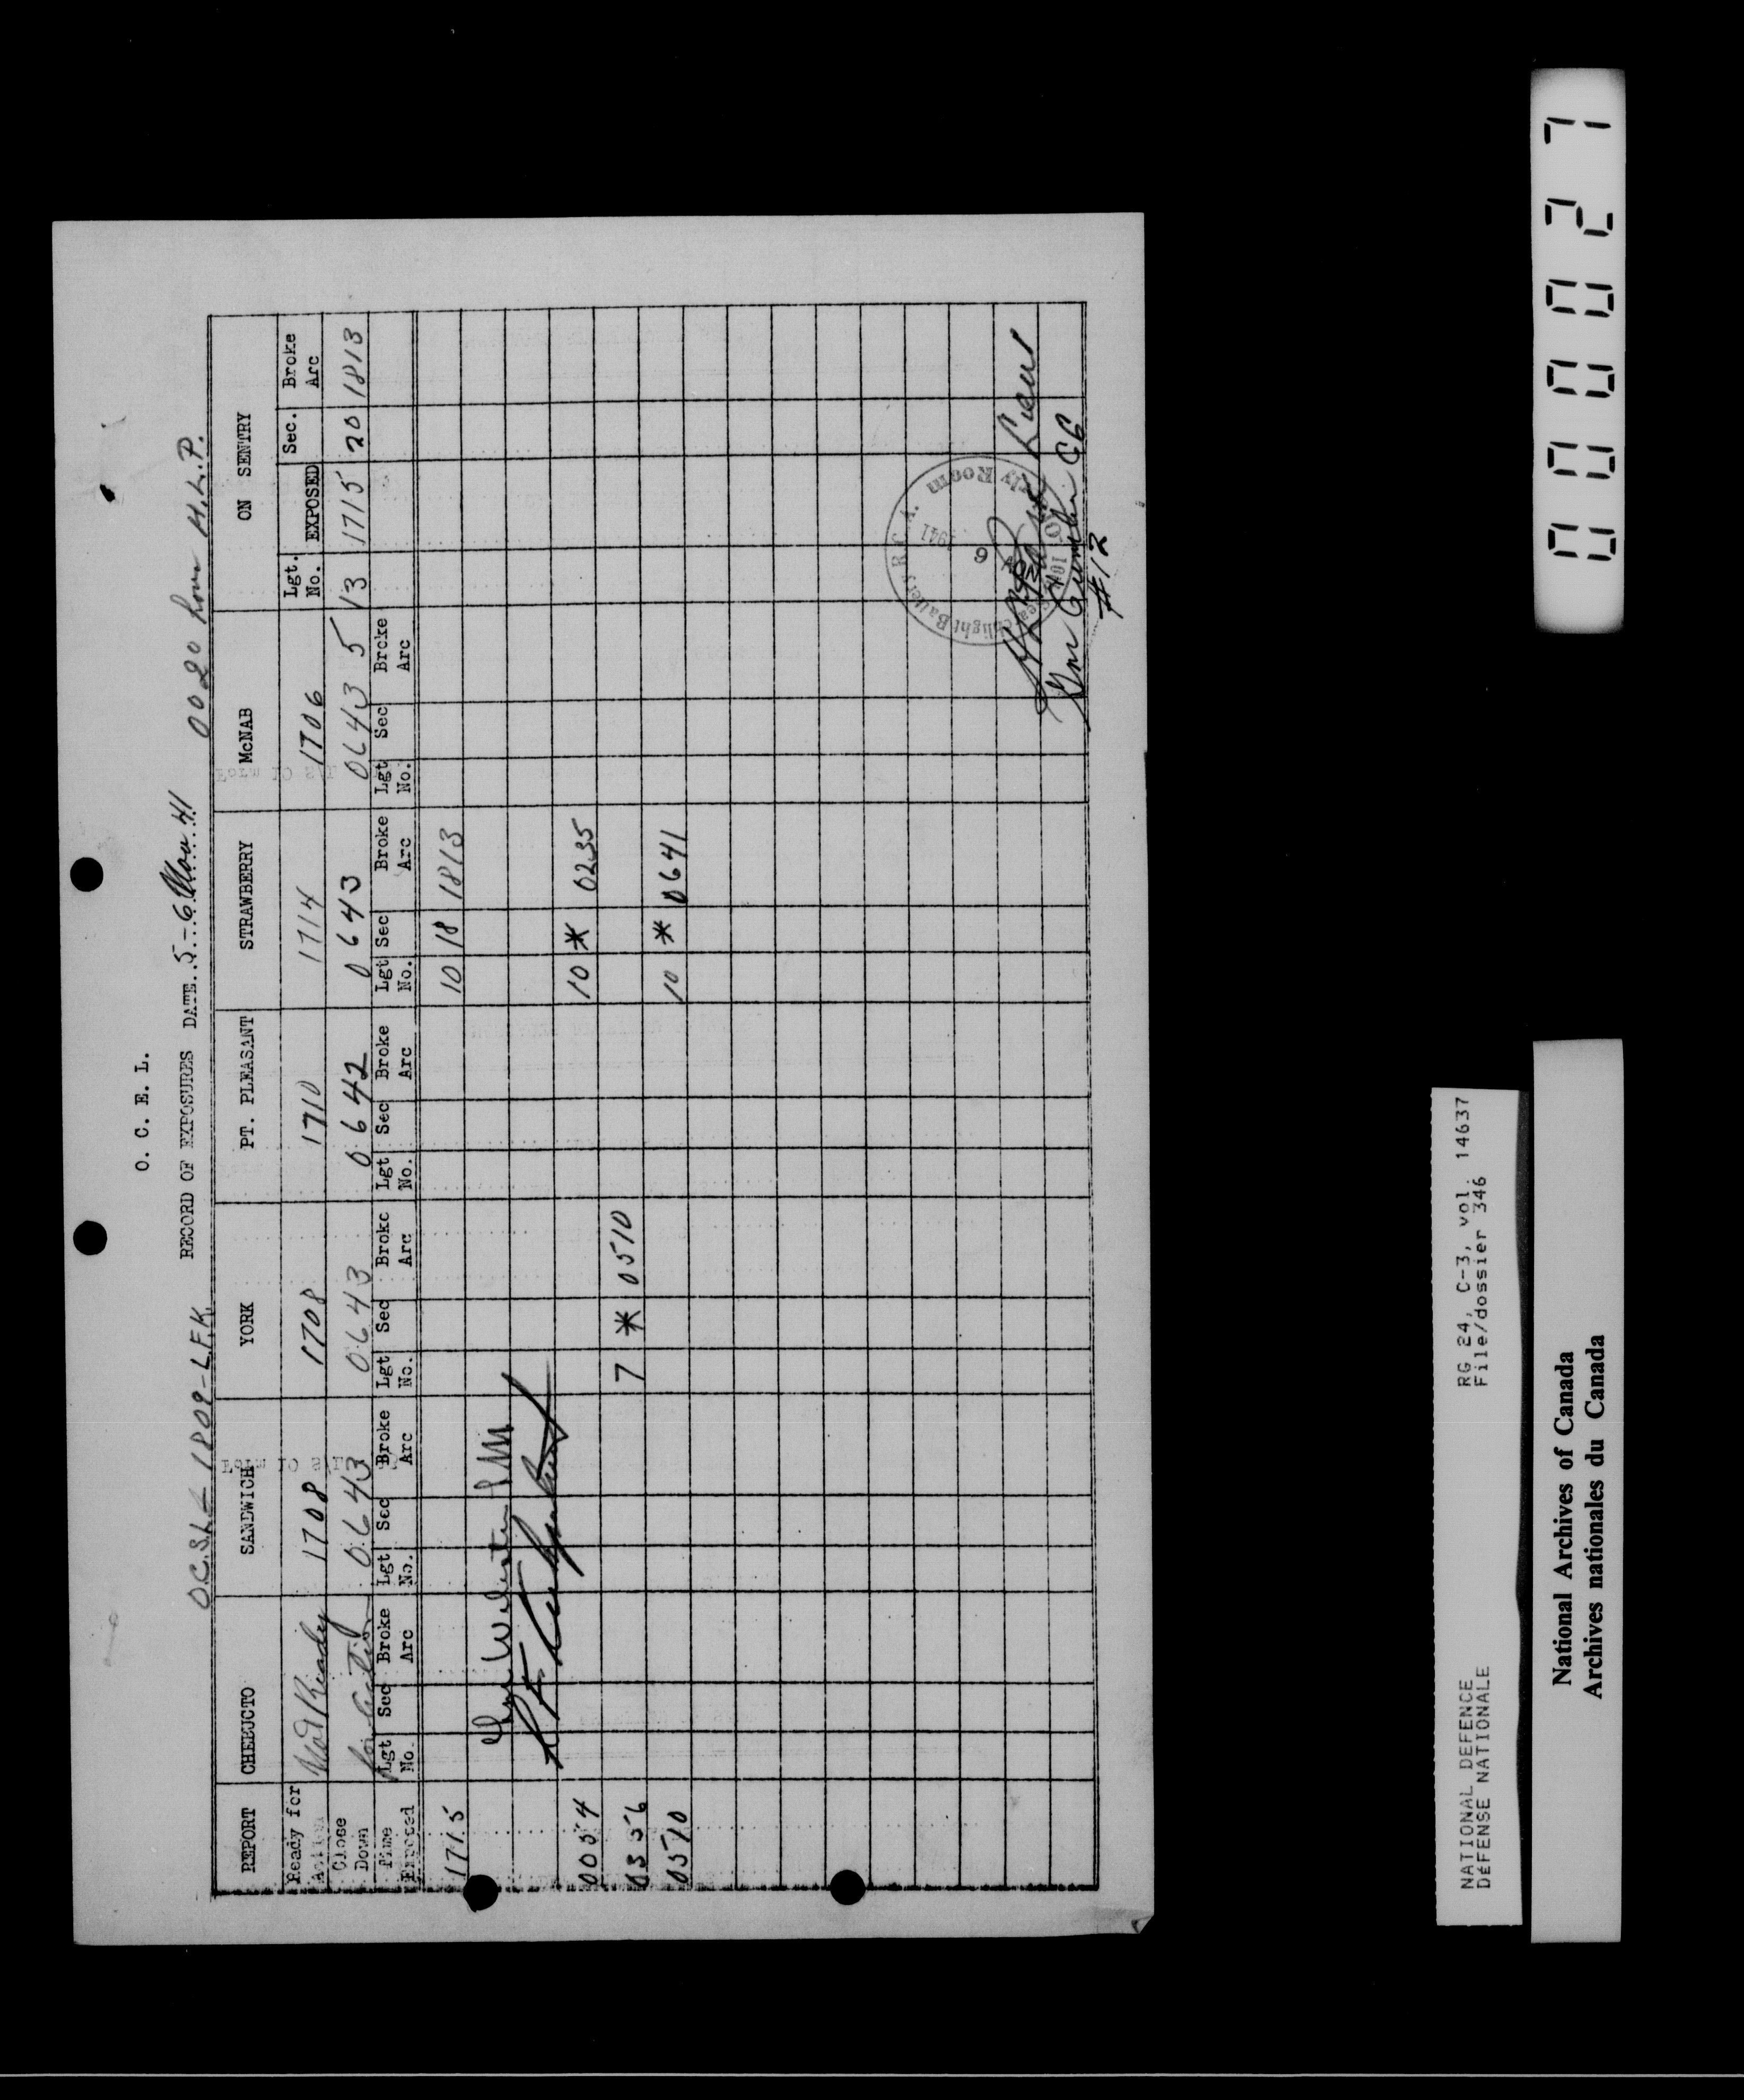 O. C. E. L.
RECORD OF EXPOSURES DATE..5-6 Nov 41
O.C.S.L. - 1809 - L.F.K. 0020 hrs H.L.P.
REPORT CHEBUCTO SANDWICH YORK PT. PLEASANT STRAWBERRY McNAB ON SENTRY
Ready for Action Not Ready 1708 1708 1710 1714 1706 Lgt. No. EXPOSED Sec. Broke Arc
Close Down for Action 0643 0643 0642 0643 0643 5 13 1715 20 1813
Time Exposed Lgt No. Sec Broke Arc Lgt No. Sec Broke Arc Lgt No. Sec Broke Arc Lgt No. Sec Broke Arc Lgt No. Sec Broke Arc Lgt No. Sec Broke Arc
1715 10 18 1813
0054 10 * 0235
0356 7 * 0510
0510 10 * 0641
Searchlight Battery R.C.A.
6
1941
Room
#12
NATIONAL DEFENCE RG 24, C-3, vol. 14637
DÉFENSE NATIONALE File/dossier 346
National Archives of Canada
Archives nationales du Canada
000027